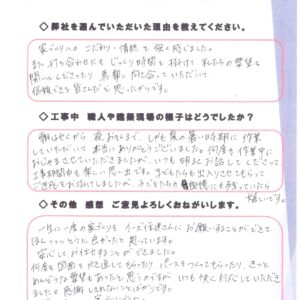 ◇弊社を選んでいただいた理由を教えてください。
家づくりへの こだわり・情熱を 強く感じました。
また 打ち合わせにも じっくり時間を 掛けて 私たちの 要望を
聞いてくださったり 真剣に向き合って いただいて
信頼できる 皆さんだと 思ったからです。
◇工事中 職人や建築現場の様子はどうでしたか？
朝はやくから 夜おそくまで、しかも 夏の 暑い時期に 作業
していただいて 本当に ありがとうございました。何度も 作業中に
おじゃまさせていただきましたが、いつも 明るく お話して くださって
工事期間中も 楽しい 思い出です。子どもたちも 出入りさせてもらって
ご迷惑を お掛けしましたが、子どもたちの 記憶にも 残っていたら
嬉しいです。
◇その他 感想 ご意見よろしくおねがいします。
一生に一度の家づくりを イーズ住建さんに お願いすることが できて
ほんとうに 良かったと 思っています。
安心して お任せすることが できました。
何度も 図面を かき直して もらったり、パースをつくってもらったり きっと
めんどうな要望も あったと 思うのですが いつも 快く対応していただき
ました。感謝しきれないことばかりです。